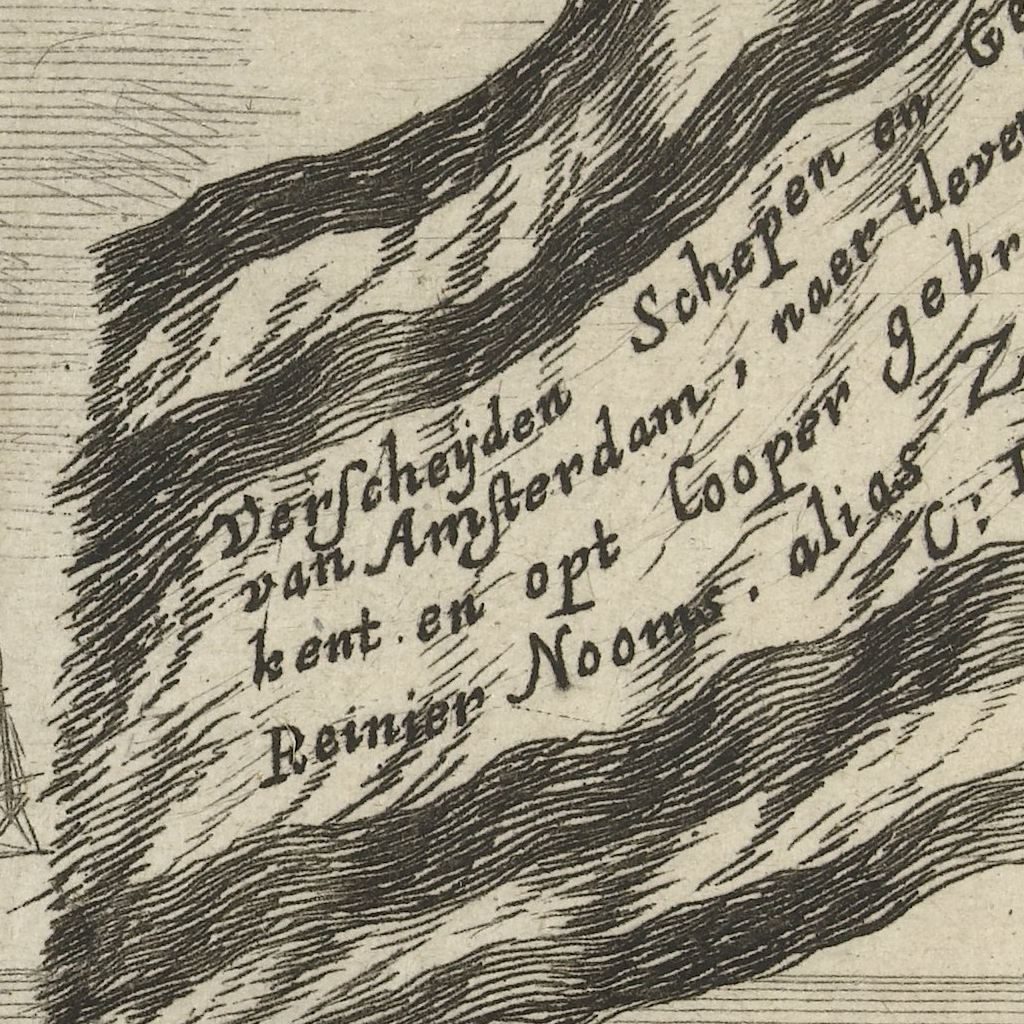 Verſcheyden Schepen en Ge
van Amſterdam, naer tleve
kent. en opt Cooper gebr
Reinier Nooms. alias Z
C: